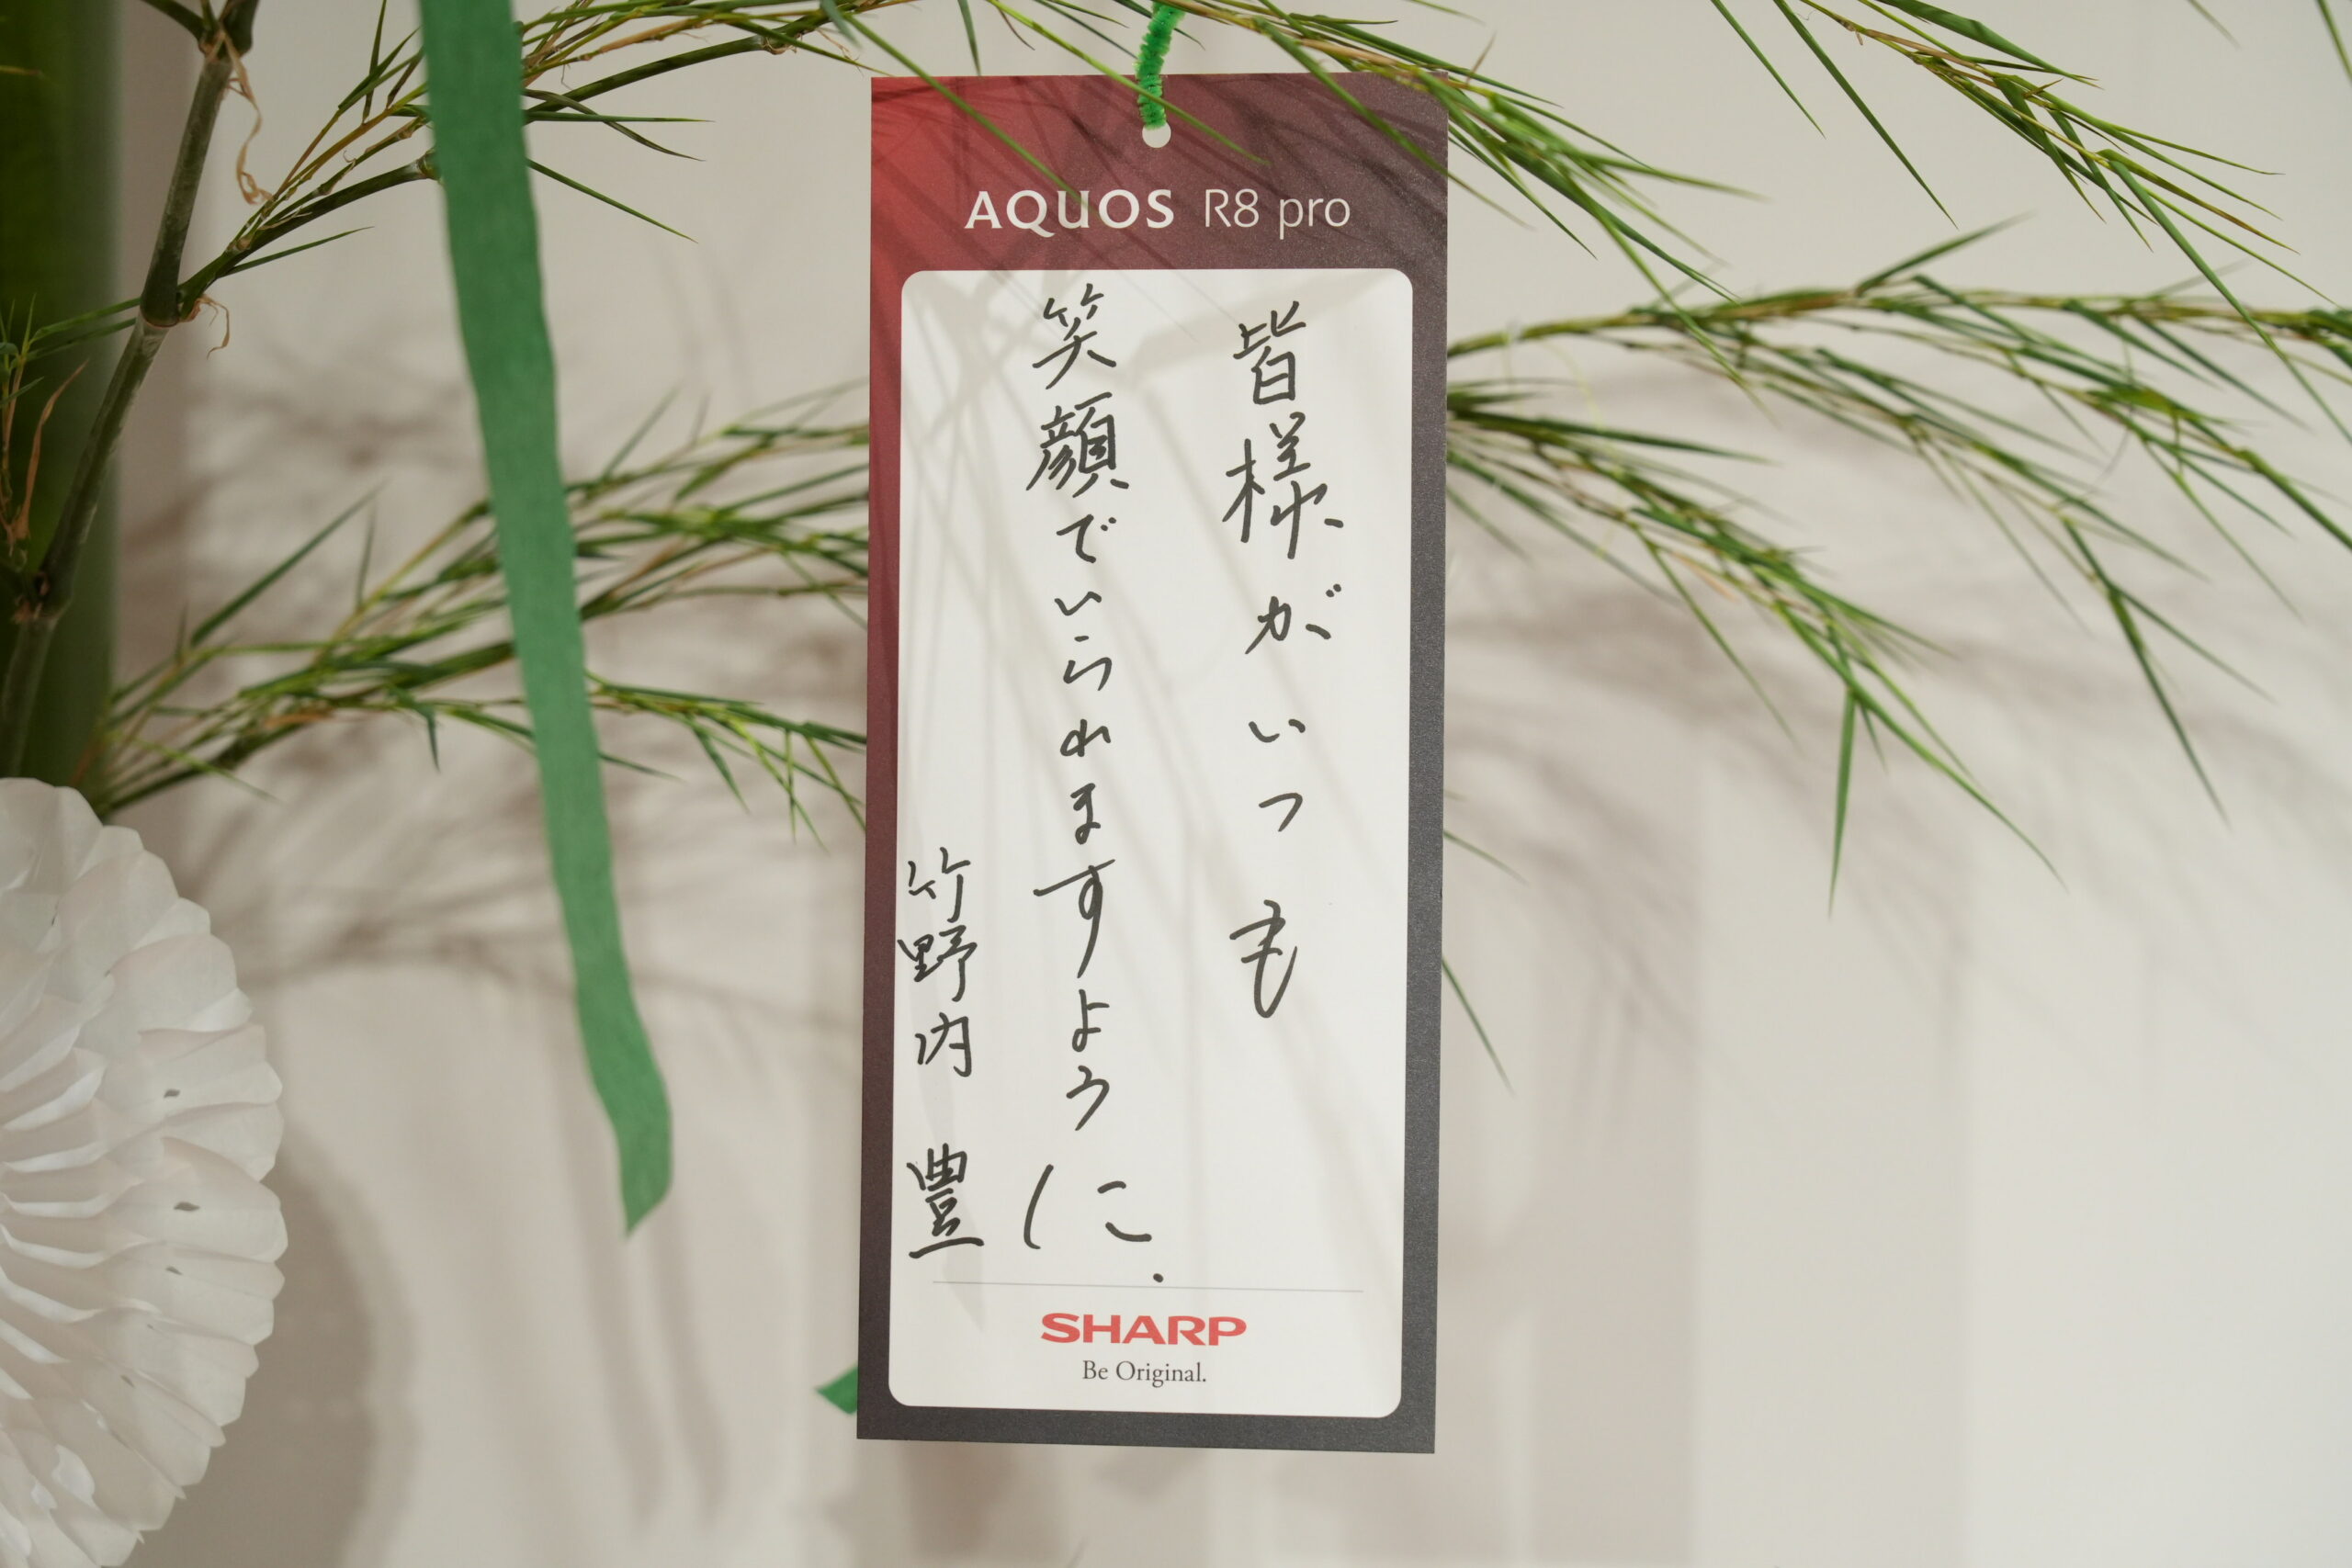 AQUOS R8 pro
皆様がいつも
笑顔でいられますように.
竹野内 豊
SHARP
Be Original.